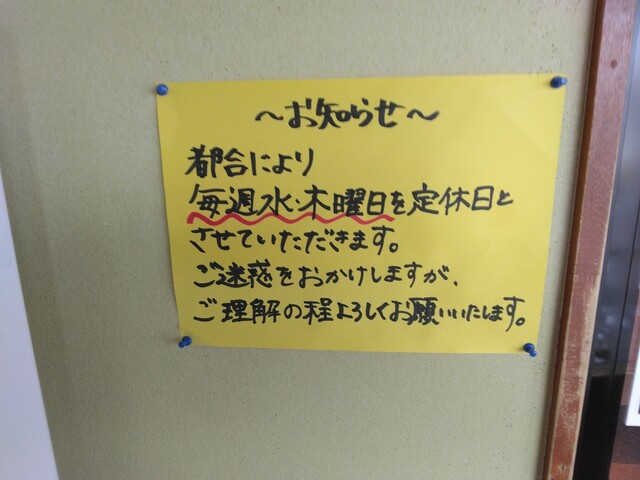 ～お知らせ～
都合により
毎週水・木曜日を定休日と
させていただきます。
ご迷惑をおかけしますが、
ご理解の程よろしくお願いいたします。